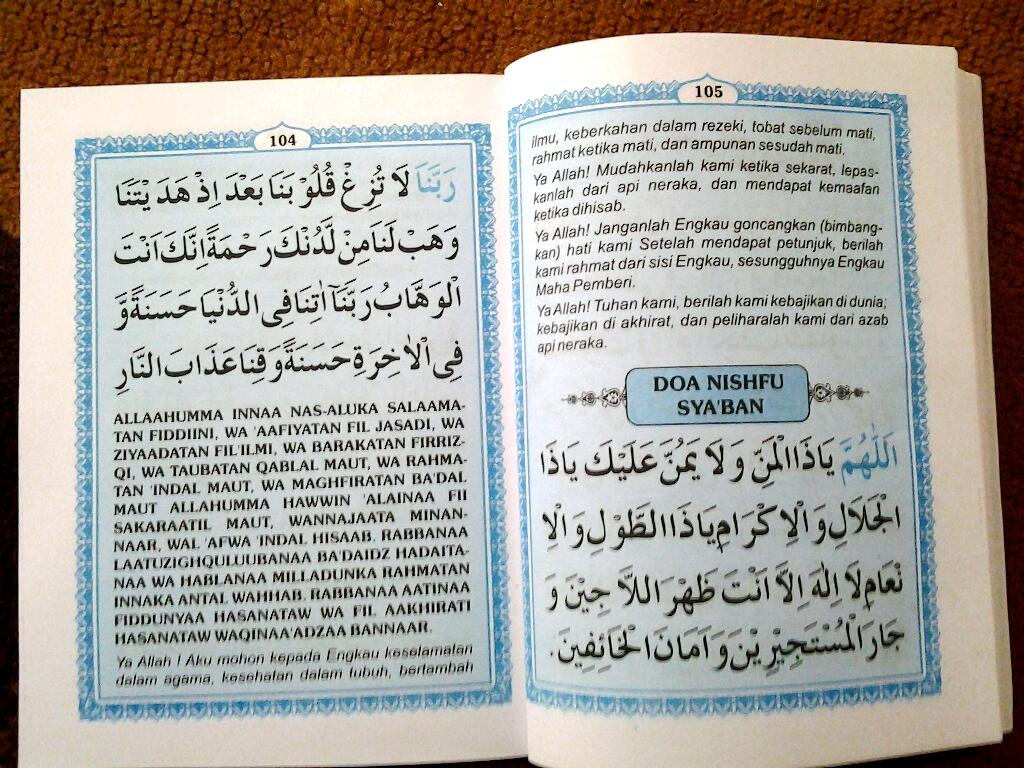 104
رَبَّنَا لَا تُزِغْ قُلُوْبَنَا بَعْدَ اِذْ هَدَيْتَنَا
وَهَبْ لَنَا مِنْ لَّدُنْكَ رَحْمَةً اِنَّكَ اَنْتَ
الْوَهَّابُ رَبَّنَا اٰتِنَا فِى الدُّنْيَا حَسَنَةً وَّ
فِى الْاٰخِرَةِ حَسَنَةً وَقِنَا عَذَابَ النَّارِ
ALLAAHUMMA INNAA NAS-ALUKA SALAAMA-
TAN FIDDIINI, WA 'AAFIYATAN FIL JASADI, WA
ZIYAADATAN FIL'ILMI, WA BARAKATAN FIRRIZ-
QI, WA TAUBATAN QABLAL MAUT, WA RAHMA-
TAN 'INDAL MAUT, WA MAGHFIRATAN BA'DAL
MAUT ALLAHUMMA HAWWIN 'ALAINAA FII
SAKARAATIL MAUT, WANNAJAATA MINAN-
NAAR, WAL 'AFWA 'INDAL HISAAB. RABBANAA
LAATUZIGHQULUUBANAA BA'DAIDZ HADAITA-
NAA WA HABLANAA MILLADUNKA RAHMATAN
INNAKA ANTAL WAHHAB. RABBANAA AATINAA
FIDDUNYAA HASANATAW WA FIL AAKHIRATI
HASANATAW WAQINAA'ADZAA BANNAAR.
Ya Allah ! Aku mohon kepada Engkau keselamatan
dalam agama, kesehatan dalam tubuh, bertambah
105
ilmu, keberkahan dalam rezeki, tobat sebelum mati,
rahmat ketika mati, dan ampunan sesudah mati.
Ya Allah! Mudahkanlah kami ketika sekarat, lepas-
kanlah dari api neraka, dan mendapat kemaafan
ketika dihisab.
Ya Allah! Janganlah Engkau goncangkan (bimbang-
kan) hati kami Setelah mendapat petunjuk, berilah
kami rahmat dari sisi Engkau, sesungguhnya Engkau
Maha Pemberi.
Ya Allah! Tuhan kami, berilah kami kebajikan di dunia;
kebajikan di akhirat, dan peliharalah kami dari azab
api neraka.
DOA NISHFU
SYA'BAN
اَللّٰهُمَّ يَاذَا الْمَنِّ وَلَا يَمُنُّ عَلَيْكَ يَاذَا
الْجَلَالِ وَالْاِكْرَامِ يَاذَا الطَّوْلِ وَالْاِ
نْعَامِ لَا اِلٰهَ اِلَّا اَنْتَ ظَهْرَ اللَّاجِيْنَ وَ
جَارَ الْمُسْتَجِيْرِيْنَ وَ اَمَانَ الْخَائِفِيْنَ.